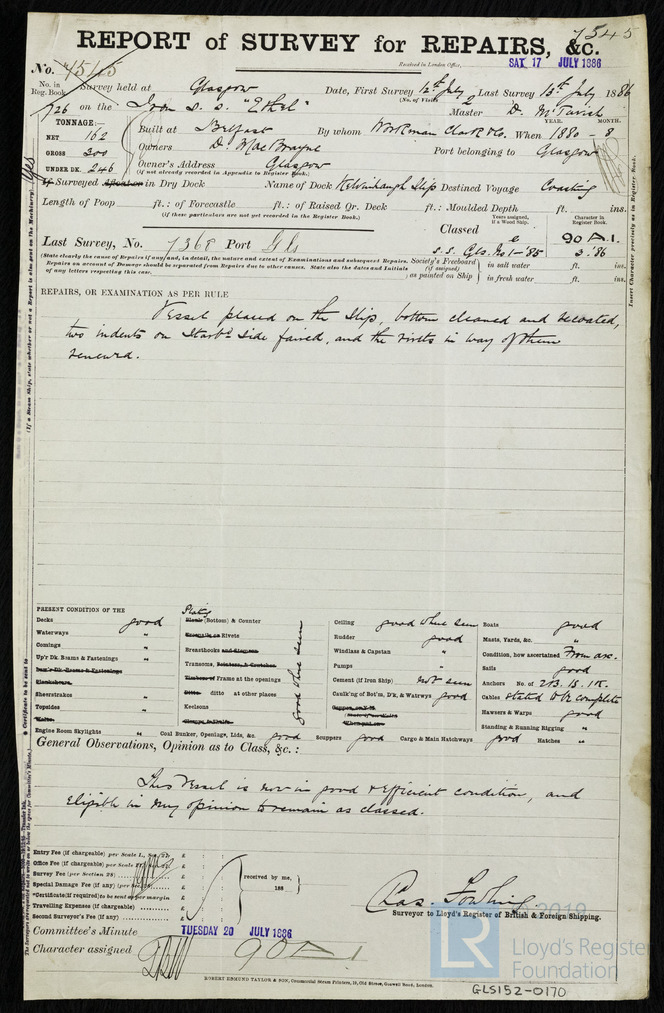 7545
REPORT of SURVEY for REPAIRS, &c.
Received in London Office, SAT. 17 JULY 1886
No. 7545 Survey held at Glasgow Date, First Survey 12th July Last Survey 13th July 1886
No. in Reg. Book. (No. of Visits 2
726 on the Iron s.s. "Ethel" Master D. McTavish
TONNAGE:— YEAR. MONTH.
NET 162 Built at Belfast By whom Workman Clark & Co. When 1880 - 8
GROSS 300 Owners D. MacBrayne Port belonging to Glasgow
UNDER DK. 246 Owner's Address Glasgow
(if not already recorded in Appendix to Register Book.)
If Surveyed Afloat or in Dry Dock Name of Dock Kelvinhaugh Slip Destined Voyage Coasting
Length of Poop ft.: of Forecastle ft.: of Raised Qr. Deck ft.: Moulded Depth ft. ins.
(if these particulars are not yet recorded in the Register Book.)
Years assigned, if a Wood Ship. Character in Register Book.
Last Survey, No. 7368 Port Gls Classed 90 A 1.
s.s. Gls. No 1 - '85 3.'86
(State clearly the cause of Repairs if any; and, in detail, the nature and extent of Examinations and subsequent Repairs.
Repairs on account of Damage should be separated from Repairs due to other causes. State also the dates and Initials
of any letters respecting this case.
Society's Freeboard (if assigned) as painted on Ship
in salt water ft. ins.
in fresh water ft. ins.
REPAIRS, OR EXAMINATION AS PER RULE
Vessel placed on the Slip, bottom cleaned and recoated,
two indents on Starbd side faired, and the rivets in way of them
renewed.
PRESENT CONDITION OF THE
Decks good
Waterways "
Comings "
Up'r Dk. Beams & Fastenings "
Low'r Dk. Beams & Fastenings
Sheerstrakes "
Topsides "
Wales
Engine Room Skylights "
Plating
(Bottom) & Counter
Rivets
Breasthooks
Transoms,
Frame at the openings
ditto at other places
Keelsons
good where seen
Coal Bunker, Openings, Lids, &c. good
Scuppers good
Ceiling good where seen
Rudder good
Windlass & Capstan "
Pumps "
Cement (if Iron Ship) not seen
Caulk'ng of Bot'm, D'k, & Watrwys good
Cargo & Main Hatchways good
Boats good
Masts, Yards, &c. "
Condition, how ascertained From asc.
Sails good
Anchors No. of 2B. 1S. 1K.
Cables stated to be complete
Hawsers & Warps good
Standing & Running Rigging "
Hatches "
General Observations, Opinion as to Class, &c.:
This Vessel is now in good & efficient condition, and
Eligible in my opinion to remain as classed.
Entry Fee (if chargeable) per Scale I., £ : :
Office Fee (if chargeable) per Scale £ : :
Survey Fee (per Section 28) £ : :
Special Damage Fee (if any) (per £ : :
*Certificate (if required) to be sent as per margin
Travelling Expenses (if chargeable) £ : :
Second Surveyor's Fee (if any) £ : :
received by me,
188
Surveyor to Lloyd's Register of British & Foreign Shipping.
Committee's Minute TUESDAY 20 JULY 1886
Character assigned 90 A 1
ROBERT EDMUND TAYLOR & SON, Commercial Steam Printers, 19, Old Street, Goswell Road, London.
2019
LR
Lloyd's Register
Foundation
GLS152-0170
Insert Character precisely as in Register Book.
Yes
(If a Steam Ship, state whether or not a Report is also sent on the Machinery)